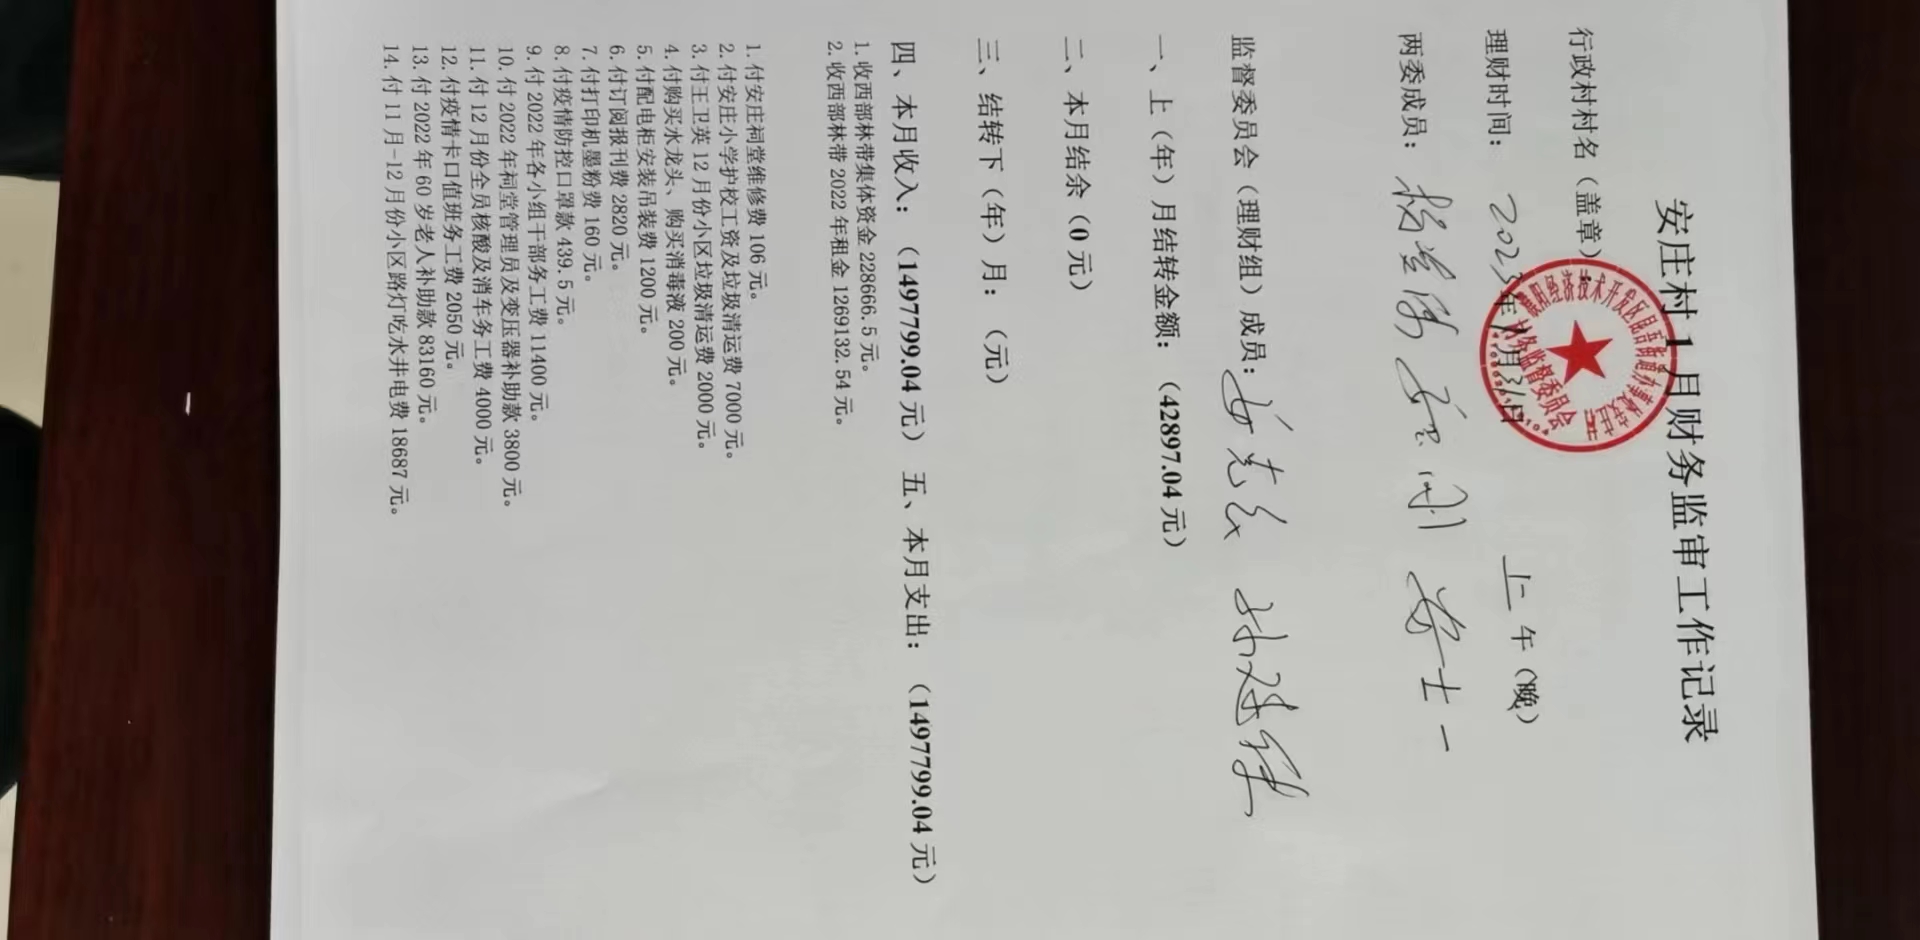 安庄村 1 月财务监审工作记录
行政村村名（盖章）：
理财时间： 2023年1月31日 上午（晚）
两委成员：
监督委员会（理财组）成员：
一、上（年）月结转金额：（42897.04 元）
二、本月结余（0 元）
三、结转下（年）月：（元）
四、本月收入：（1497799.04 元） 五、本月支出：（1497799.04 元）
1. 收西部林带集体资金 228666.5 元。
2. 收西部林带 2022 年租金 1269132.54 元。
1. 付安庄祠堂维修费 106 元。
2. 付安庄小学护校工资及垃圾清运费 7000 元。
3. 付王卫英 12 月份小区垃圾清运费 2000 元。
4. 付购买水龙头、购买消毒液 200 元。
5. 付配电柜安装吊装费 1200 元。
6. 付订阅报刊费 2820 元。
7. 付打印机墨粉费 160 元。
8. 付疫情防控口罩款 439.5 元。
9. 付 2022 年各小组干部务工费 11400 元。
10. 付 2022 年祠堂管理员及变压器补助款 3800 元。
11. 付 12 月份全员核酸及消车务工费 4000 元。
12. 付疫情卡口值班务工费 2050 元。
13. 付 2022 年 60 岁老人补助款 83160 元。
14. 付 11 月-12 月份小区路灯吃水井电费 18687 元。